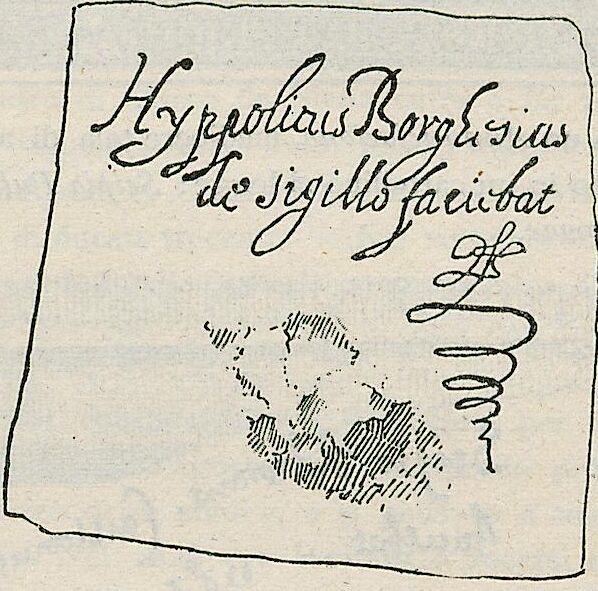 Hyppolitus Borghesius
de sigillo faciebat